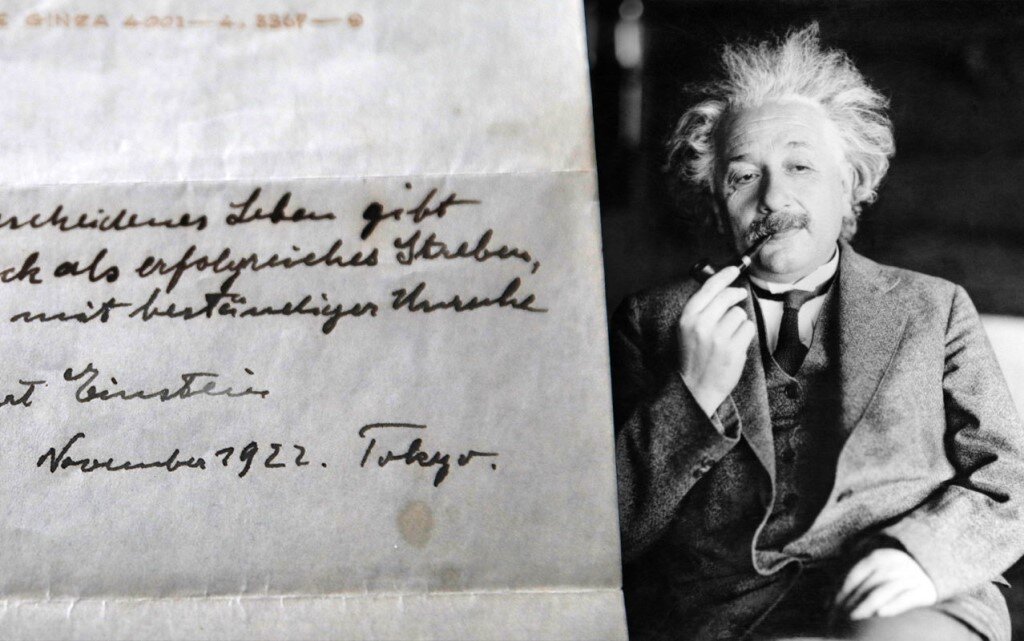 E GINZA 4001—4. 3367—9
escheidenes Leben gibt
ck als erfolgreiches Streben,
mit beständiger Unruhe
rt Einstein
November 1922. Tokyo.